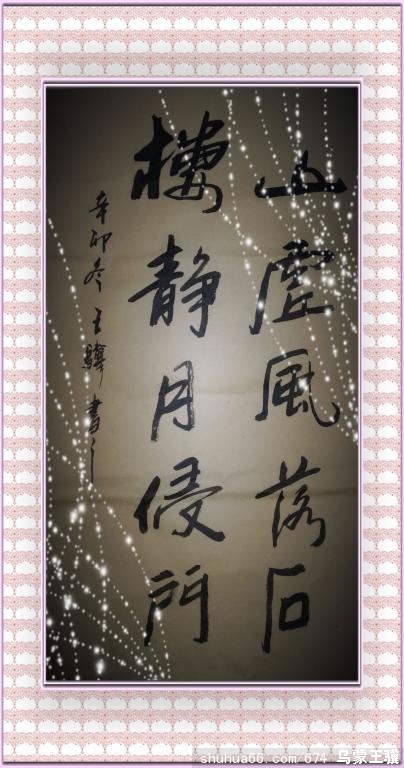 山虚風落石
樓静月侵門
辛卯冬王驥書之
shuhua66.com/674 乌蒙王骥